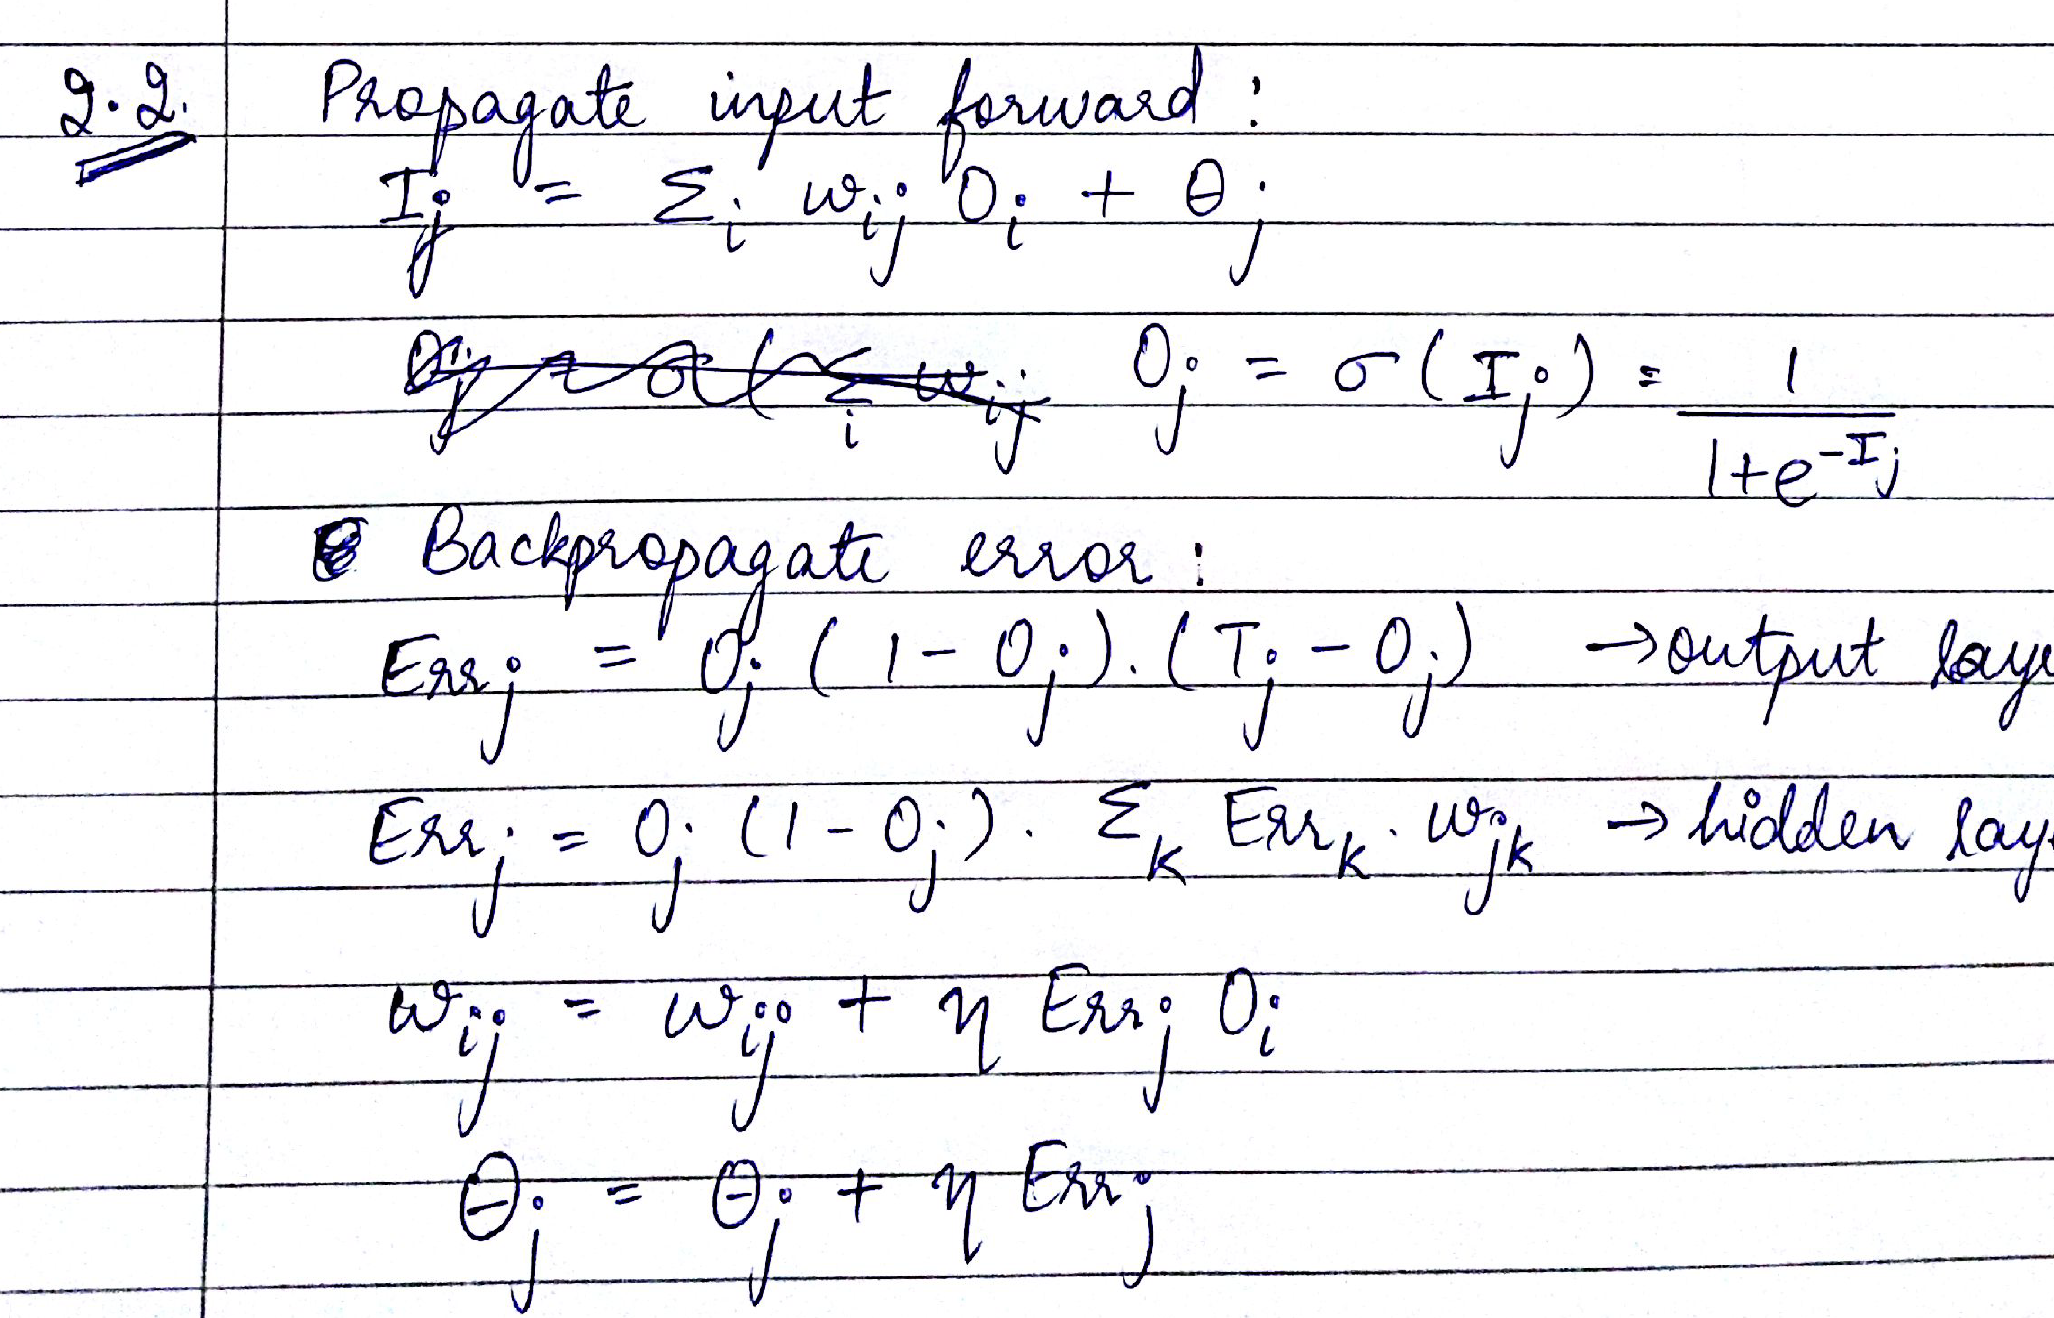 2.2. Propagate input forward :
I_j = Σ_i w_ij O_i + θ_j
O_j = σ(I_j) = 1/(1+e^-I_j)
Backpropagate error :
Err_j = O_j (1 - O_j). (T_j - O_j) → output laye
Err_j = O_j (1 - O_j). Σ_k Err_k . w_jk → hidden laye
w_ij = w_ij + η Err_j O_i
θ_j = θ_j + η Err_j